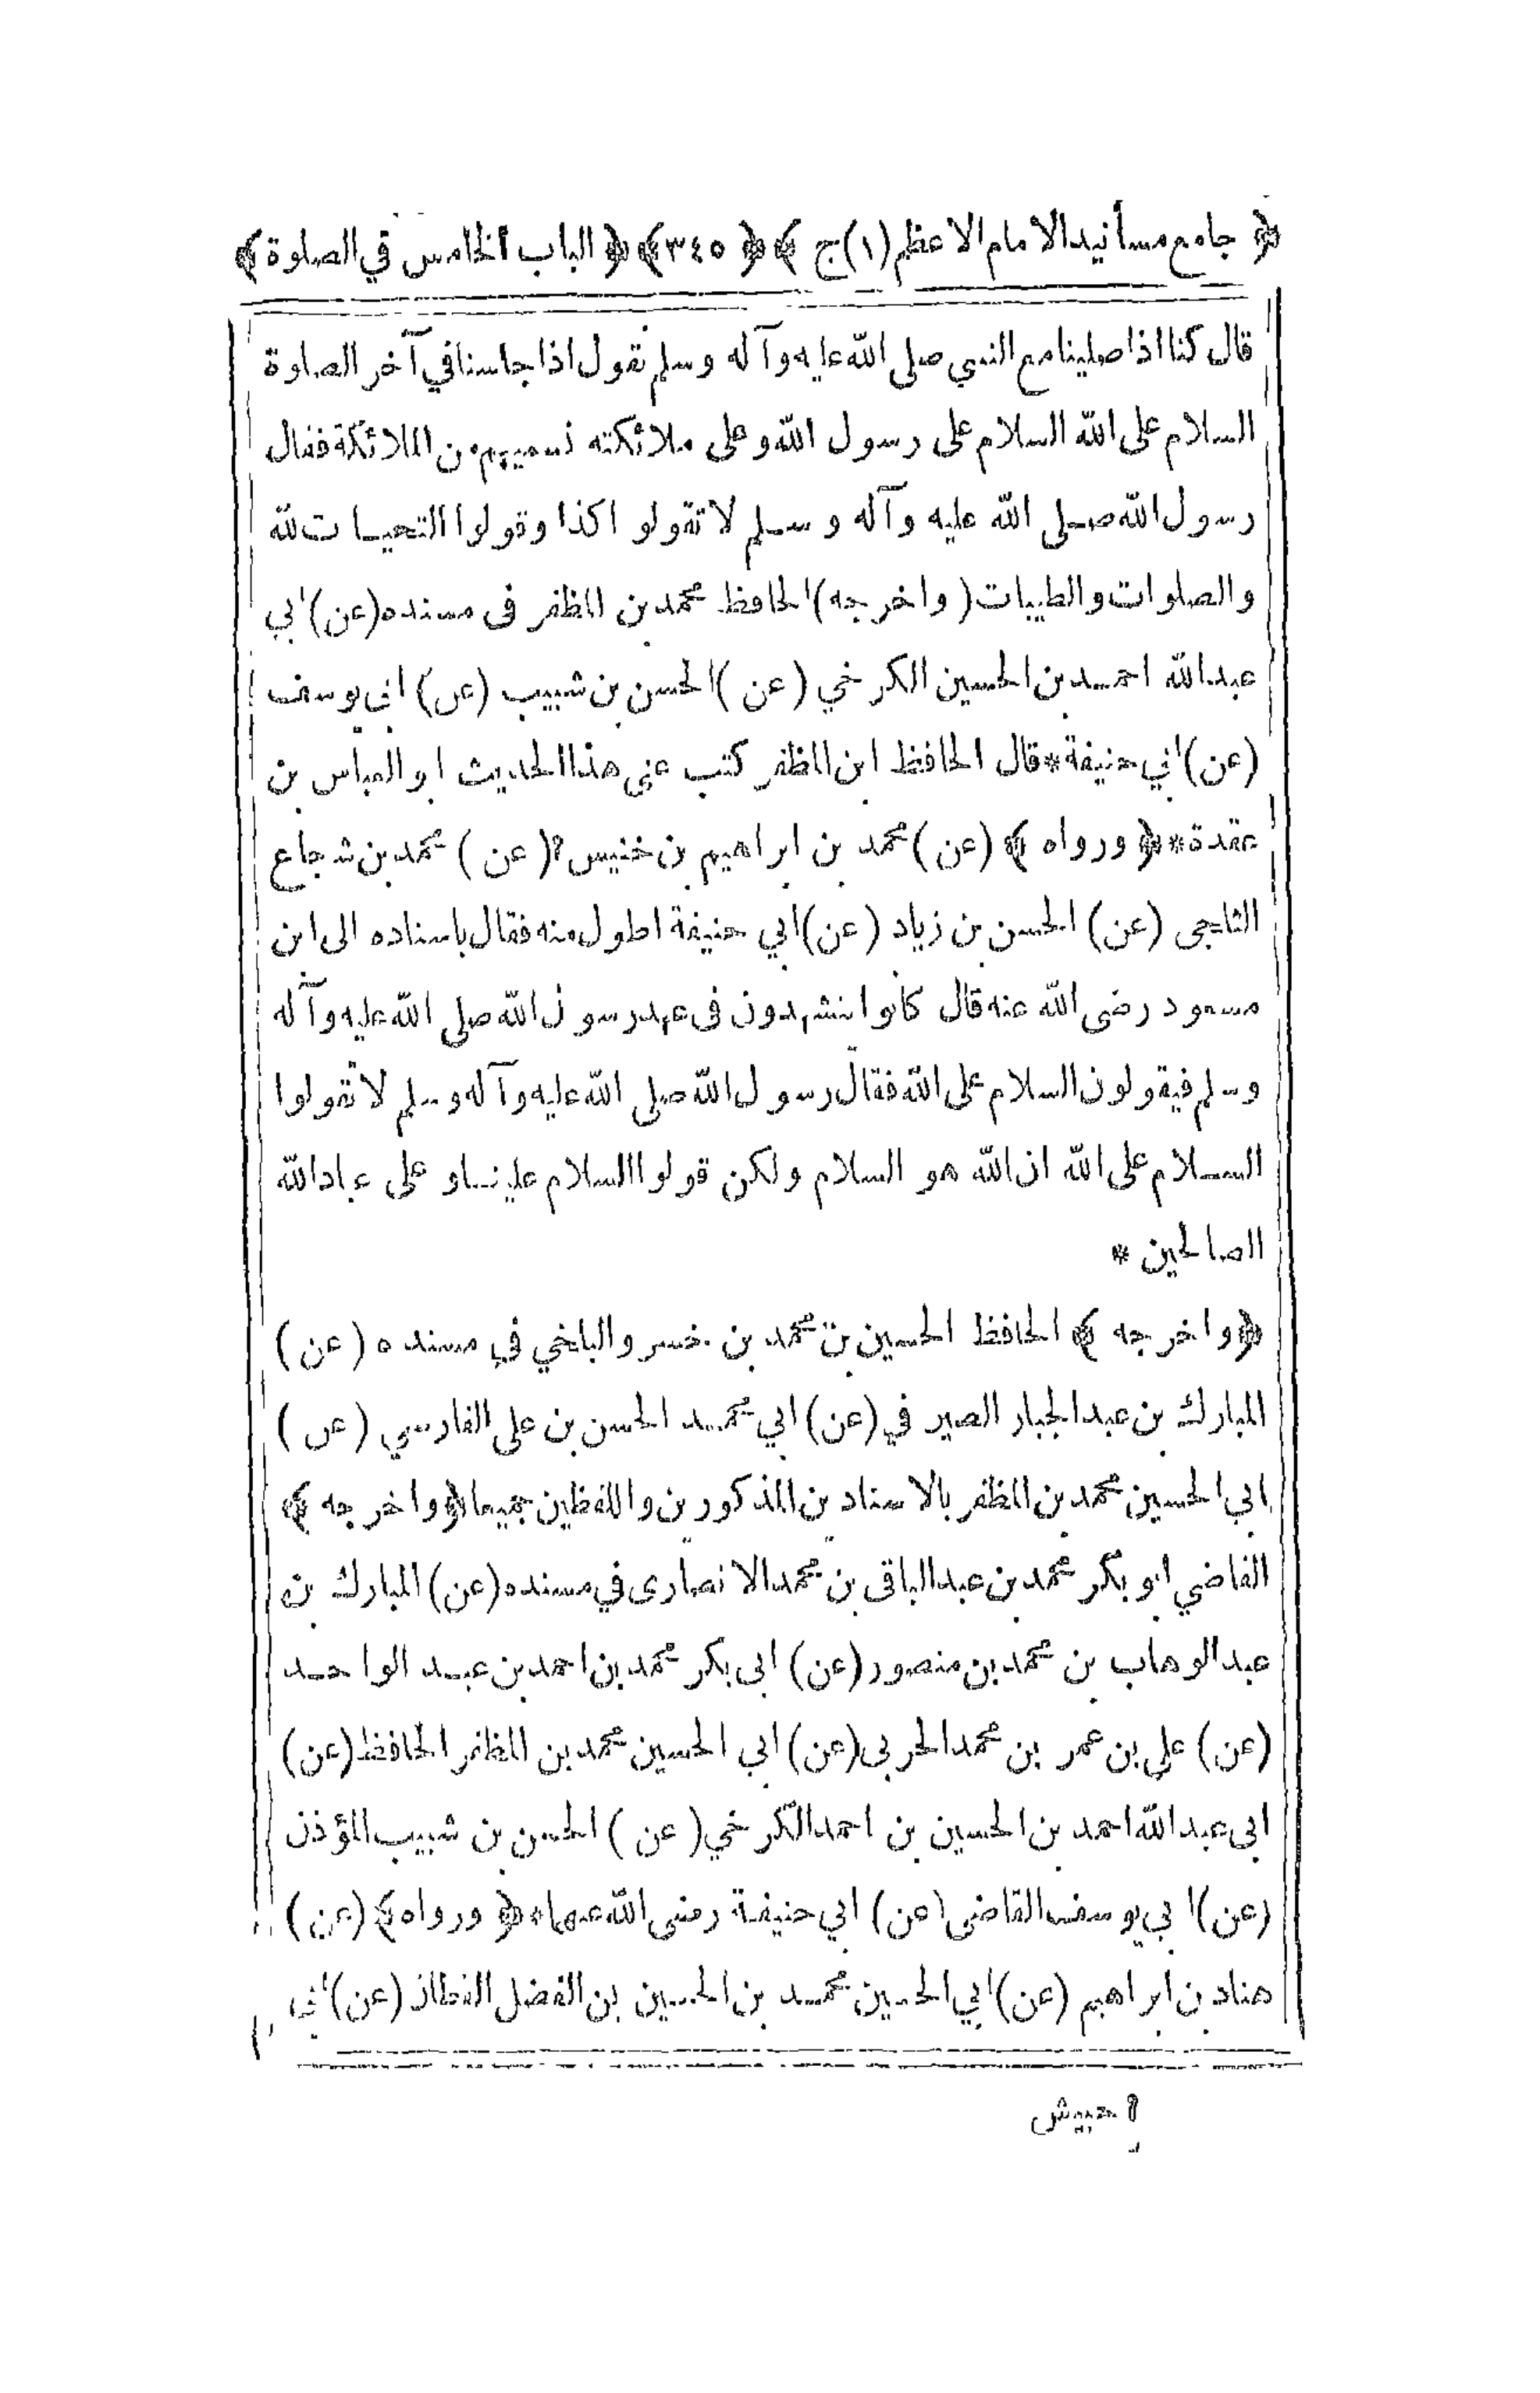 ﴿ جامع مسانيد الامام الاعظم (١) ج ﴾ ﴿ ٣٤٥ ﴾ ﴿ الباب الخامس في الصلوة ﴾
قال كنا اذا صلينا مع النبي صلى الله عليه وآله وسلم نقول اذا جلسنا في آخر الصلوة
السلام على الله السلام على رسول الله وعلى ملائكته نسميهم من الملائكة فقال
رسول الله صلى الله عليه وآله وسلم لا تقولوا كذا وقولوا التحيات لله
والصلوات والطيبات (واخرجه) الحافظ محمد بن المظفر فى مسنده (عن) ابي
عبد الله احمد بن الحسين الكرخي (عن) الحسن بن شبيب (عن) ابى يوسف
(عن) ابي حنيفة * قال الحافظ ابن المظفر كتب عنى هذا الحديث ابو العباس بن
عقدة * ﴿ ورواه ﴾ (عن) محمد بن ابراهيم بن خنيس ؟ (عن) محمد بن شجاع
الثلجى (عن) الحسن بن زياد (عن) ابي حنيفة اطول منه فقال باسناده الى ابن
مسعود رضى الله عنه قال كانوا يتشهدون فى عهد رسول الله صلى الله عليه وآله
وسلم فيقولون السلام على الله فقال رسول الله صلى الله عليه وآله وسلم لا تقولوا
السلام على الله ان الله هو السلام ولكن قولوا السلام علينا وعلى عباد الله
الصالحين *
﴿ واخرجه ﴾ الحافظ الحسين بن محمد بن خسرو البلخي في مسنده (عن)
المبارك بن عبد الجبار الصيرفي (عن) ابي محمد الحسن بن على الفارسي (عن)
ابي الحسين محمد بن المظفر بالاسنادين المذكورين واللفظين جميعا ﴿ واخرجه ﴾
القاضي ابو بكر محمد بن عبد الباقى بن محمد الانصارى في مسنده (عن) المبارك بن
عبد الوهاب بن محمد بن منصور (عن) ابى بكر محمد بن احمد بن عبد الواحد
(عن) على بن عمر بن محمد الحربى (عن) ابي الحسين محمد بن المظفر الحافظ (عن)
ابى عبد الله احمد بن الحسين بن احمد الكرخي (عن) الحسن بن شبيب المؤذن
(عن) ابي يوسف القاضى (عن) ابي حنيفة رضى الله عنهما * ﴿ ورواه ﴾ (عن)
هناد بن ابراهيم (عن) ابي الحسين محمد بن الحسين بن الفضل القطان (عن) ابى
؟ حبيش